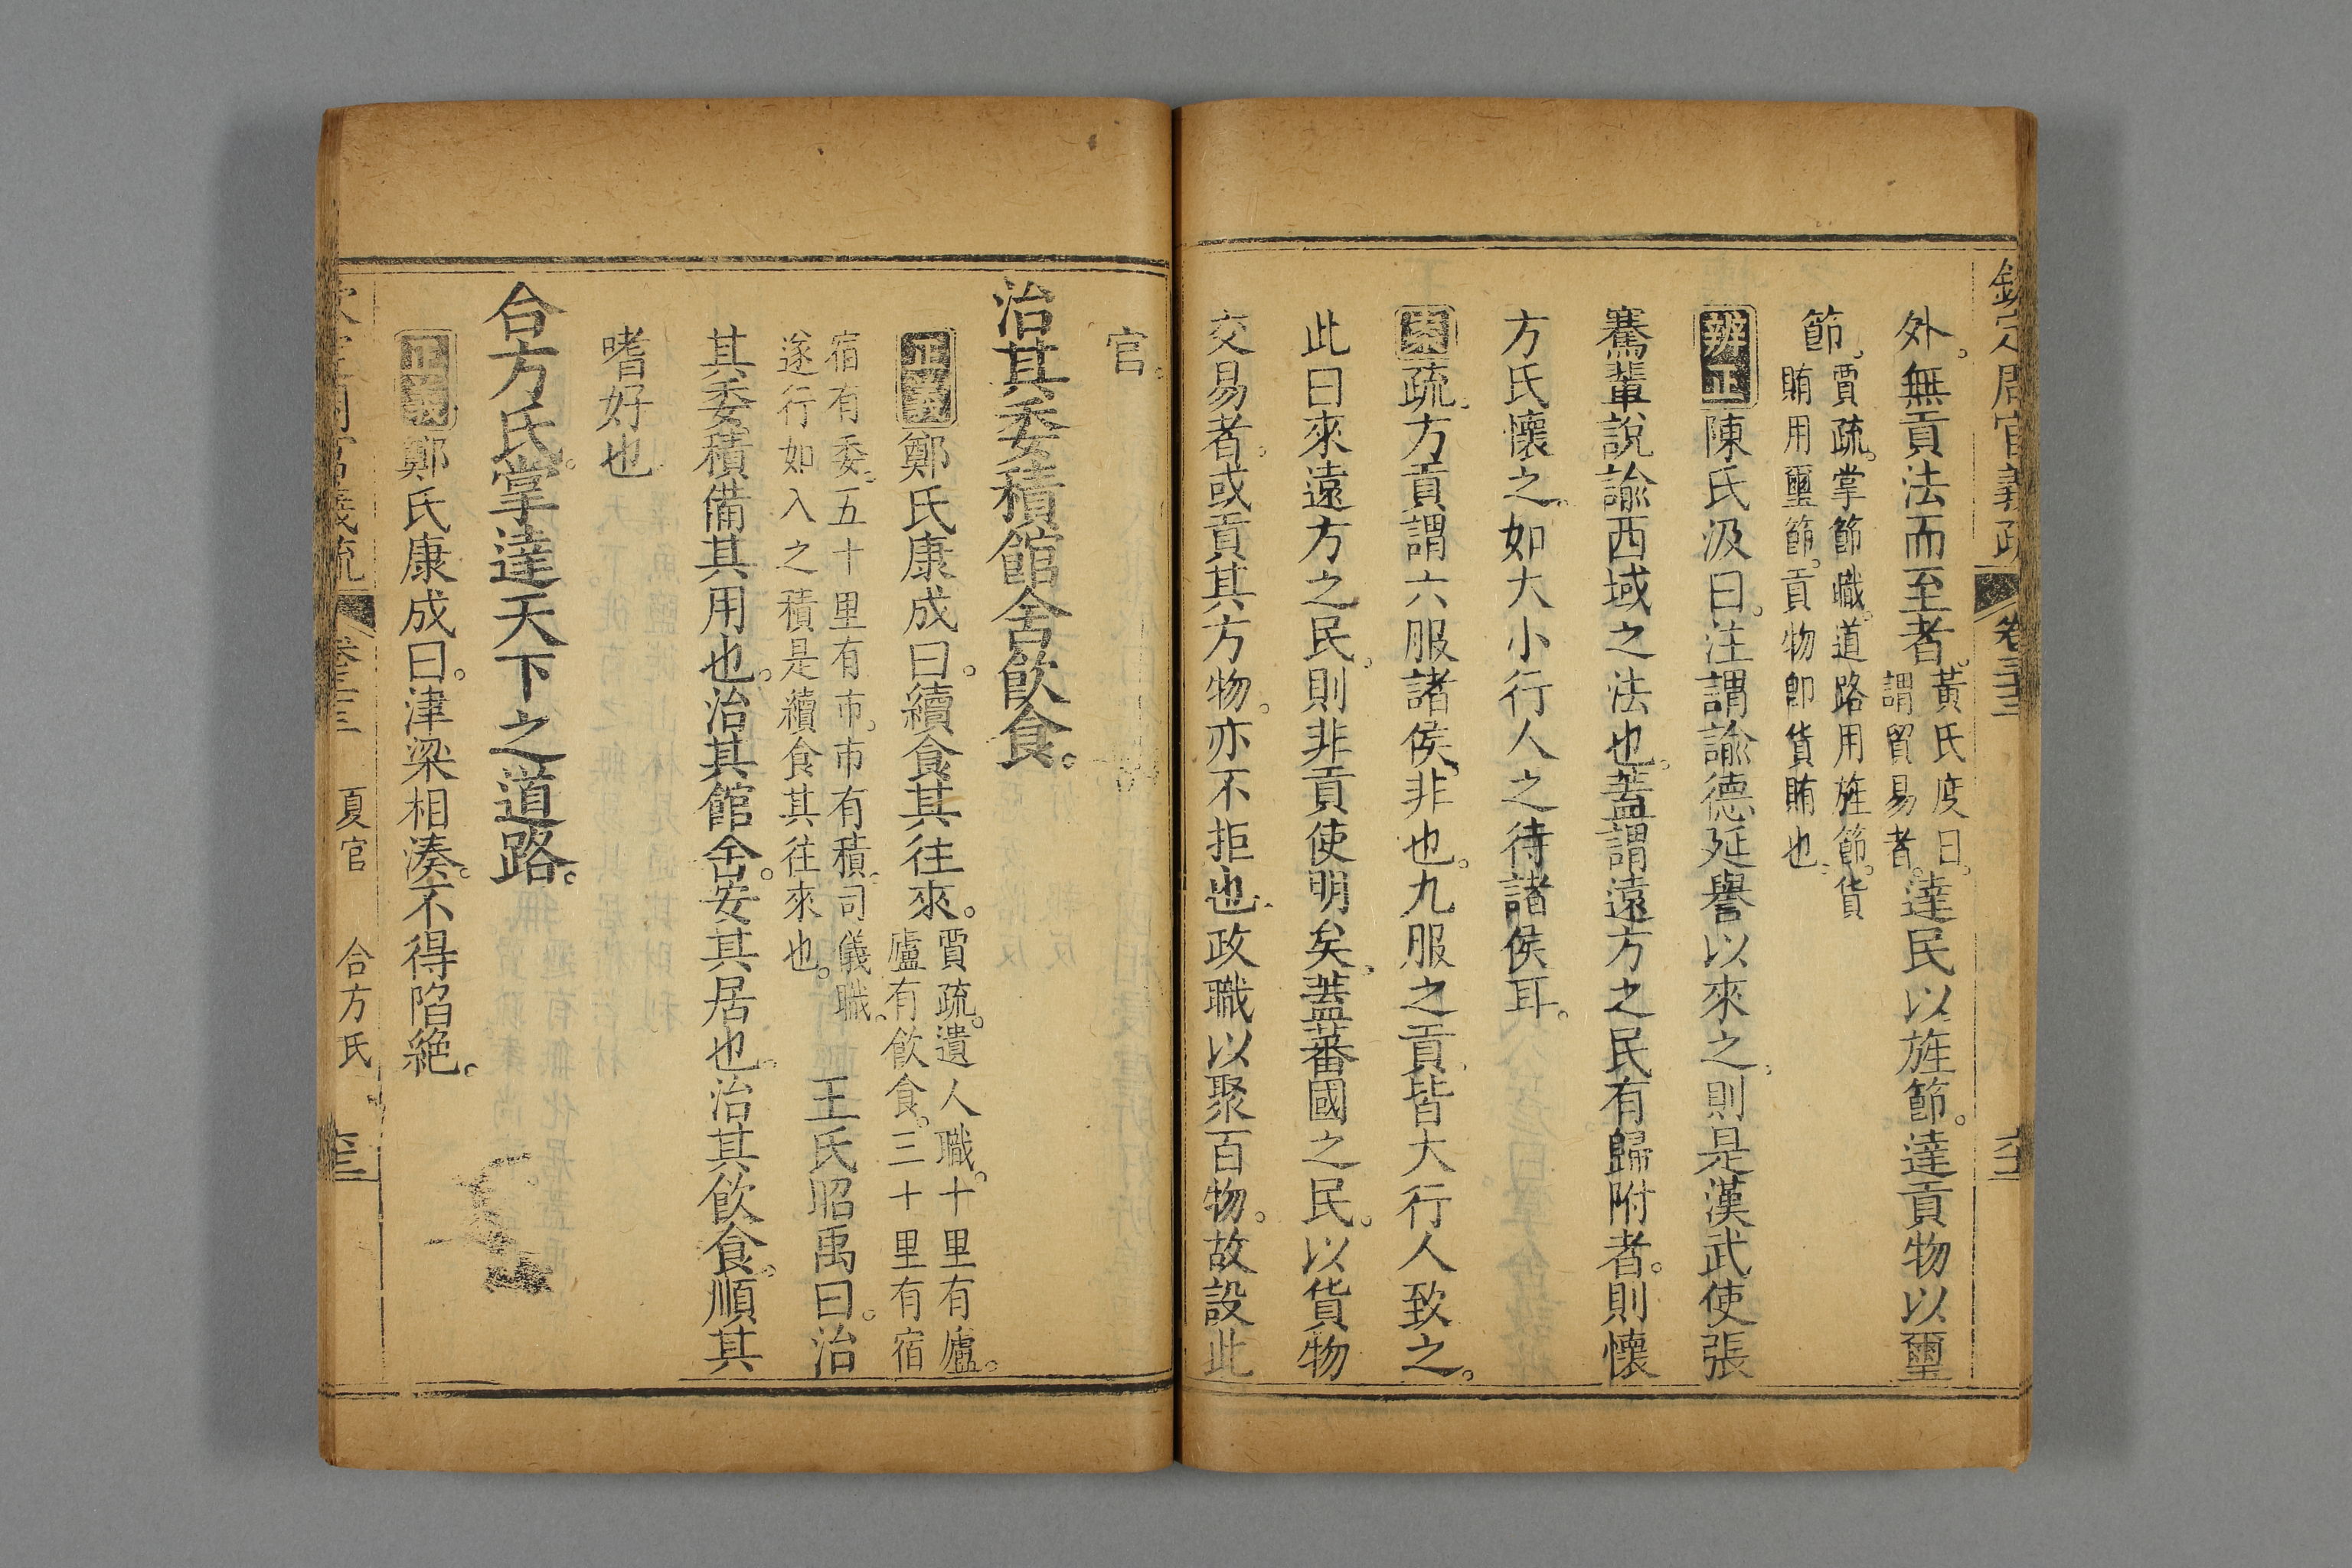 欽定周官義疏 卷三十三
外。無貢法而至者。黃氏度曰。謂貿易者。達民以旌節。達貢物以璽
節。賈疏。掌節職。道路用旌節。貨賄用璽節。貢物卽貨賄也。
辨正 陳氏汲曰。注謂諭德延譽以來之。則是漢武使張
騫輩說諭西域之法也。蓋謂遠方之民有歸附者。則懷
方氏懷之。如大小行人之待諸侯耳。
案 疏。方貢謂六服諸侯。非也。九服之貢。皆大行人致之。
此曰來遠方之民。則非貢使明矣。蓋蕃國之民。以貨物
交易者。或貢其方物。亦不拒也。政職以聚百物。故設此
官。
治其委積館舍飲食。
正義 鄭氏康成曰。續食其往來。賈疏。遺人職。十里有廬。廬有飲食。三十里有宿
宿有委。五十里有市。市有積。司儀職。遂行如入之積是續食其往來也。 王氏昭禹曰。治
其委積備其用也。治其館舍。安其居也。治其飲食。順其
嗜好也
合方氏。掌達天下之道路。
正義 鄭氏康成曰。津梁相湊。不得陷絕。
欽定周官義疏 卷三十三 夏官 合方氏